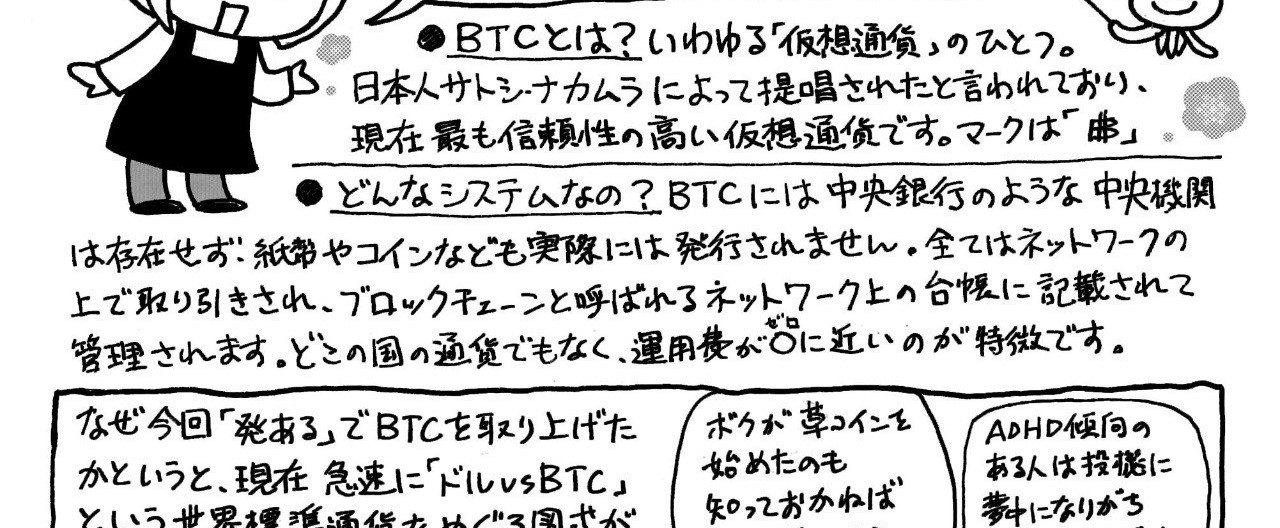 ●BTCとは？いわゆる「仮想通貨」のひとつ。
日本人サトシ・ナカムラによって提唱されたと言われており、
現在最も信頼性の高い仮想通貨です。マークは「　」
●どんなシステムなの？BTCには中央銀行のような中央機関
は存在せず、紙幣やコインなども実際には発行されません。全てはネットワークの
上で取り引きされ、ブロックチェーンと呼ばれるネットワーク上の台帳に記載されて
管理されます。どこの国の通貨でもなく、運用費が〇に近いのが特徴です。
ゼロ
なぜ今回「発ある」でBTCを取り上げた
かというと、現在急速に「ドルvsBTC」
という世界標準通貨をめぐる図式が
ボクが草コインを
始めたのも
知っておかねば
ADHD傾向の
ある人は投機に
夢中になりがち